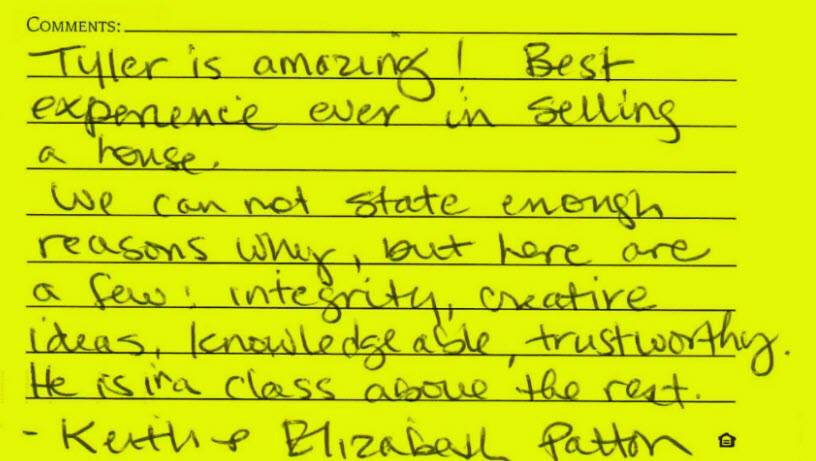 COMMENTS:
Tyler is amazing! Best
experience ever in selling
a house.
We can not state enough
reasons why, but here are
a few: integrity, creative
ideas, knowledgeable, trustworthy.
He is in a class above the rest.
- Keith & Elizabeth Patton